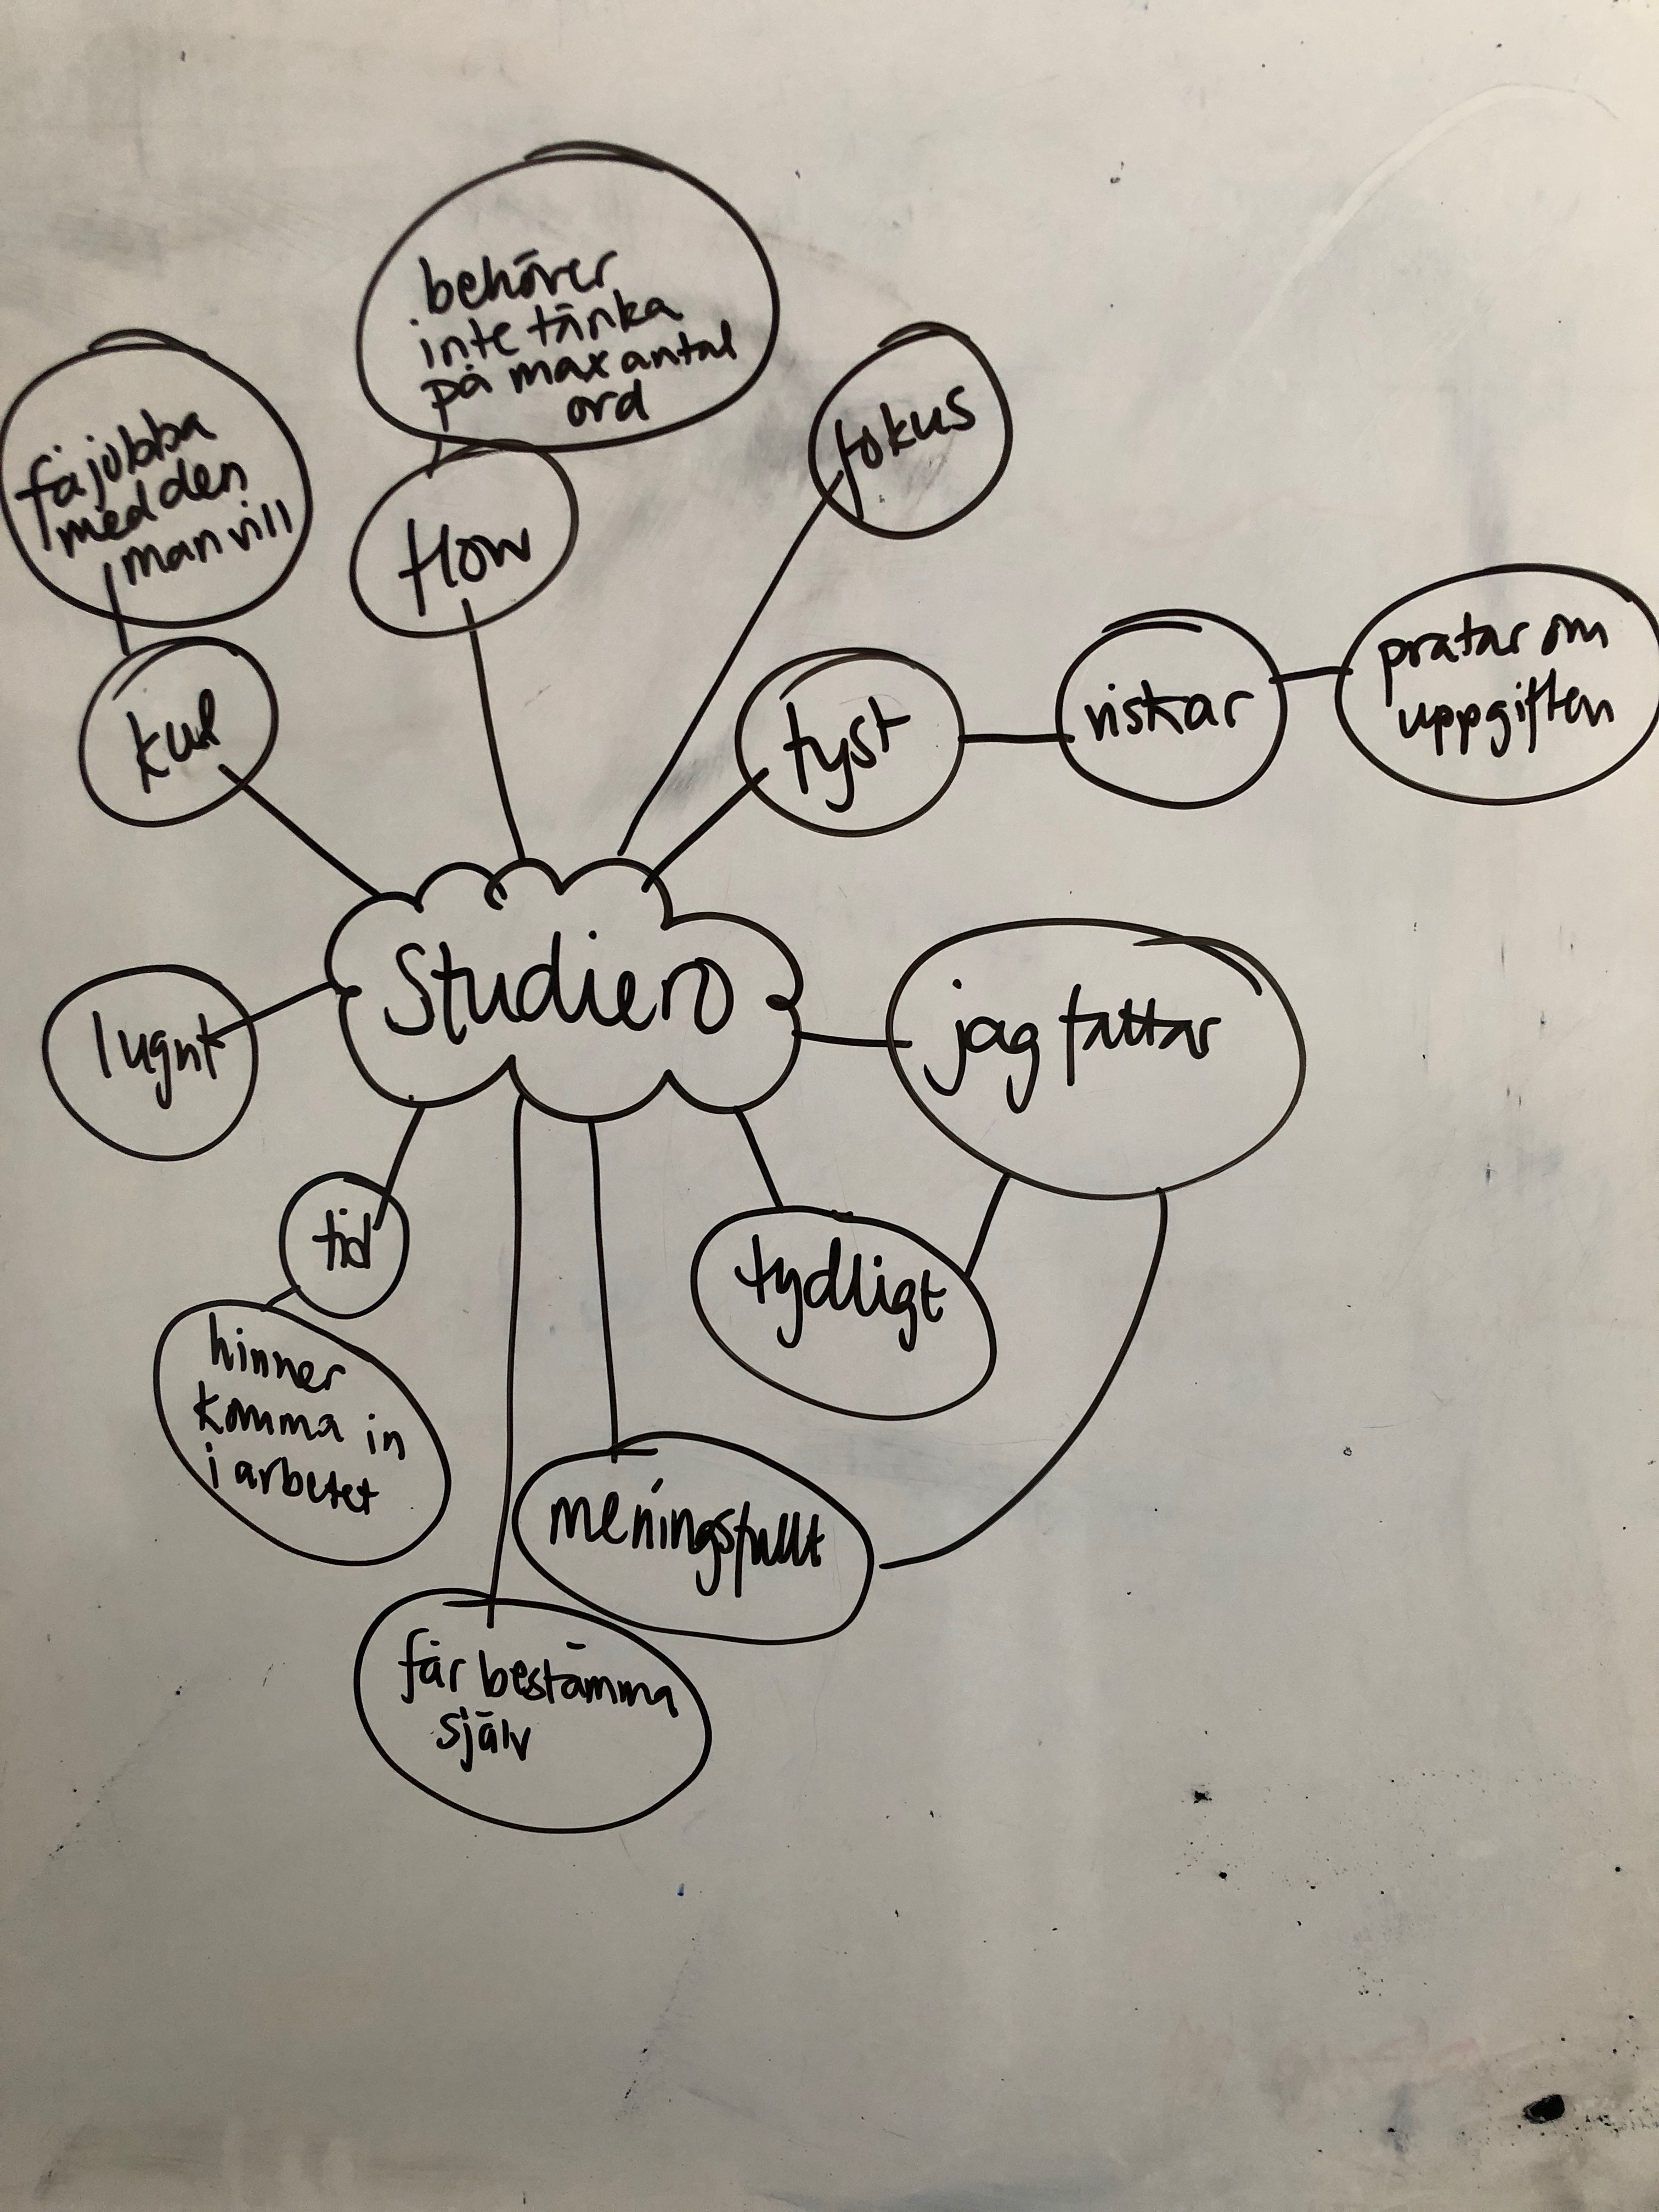 behöver
inte tänka
på max antal
ord
fokus
få jobba
med den
man vill
flow
pratar om
uppgiften
viskar
tyst
kul
Studiero
jag fattar
lugnt
tid
tydligt
hinner
komma in
i arbetet
meningsfullt
får bestämma
själv